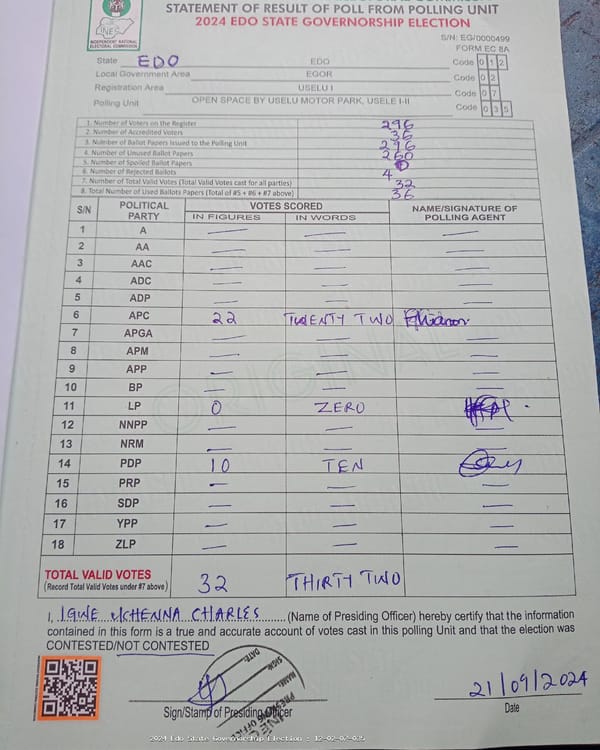 INEC
INDEPENDENT NATIONAL
ELECTORAL COMMISSION
STATEMENT OF RESULT OF POLL FROM POLLING UNIT
2024 EDO STATE GOVERNORSHIP ELECTION
S/N: EG/0000499
FORM EC 8A
State EDO EDO Code 0 1 2
Local Government Area EGOR Code 0 2
Registration Area USELU I Code 0 7
Polling Unit OPEN SPACE BY USELU MOTOR PARK, USELE I-II Code 0 3 5
1. Number of Voters on the Register 296
2. Number of Accredited Voters 36
3. Number of Ballot Papers Issued to the Polling Unit 296
4. Number of Unused Ballot Papers 260
5. Number of Spoiled Ballot Papers 0
6. Number of Rejected Ballots 4
7. Number of Total Valid Votes (Total Valid Votes cast for all parties) 32
8. Total Number of Used Ballots Papers (Total of #5 + #6 + #7 above) 36
S/N POLITICAL PARTY VOTES SCORED NAME/SIGNATURE OF POLLING AGENT
IN FIGURES IN WORDS
1 A — — —
2 AA — — —
3 AAC — — —
4 ADC — — —
5 ADP — — —
6 APC 22 TWENTY TWO
7 APGA — — —
8 APM — — —
9 APP — — —
10 BP — — —
11 LP 0 ZERO
12 NNPP — — —
13 NRM — — —
14 PDP 10 TEN
15 PRP — — —
16 SDP — — —
17 YPP — — —
18 ZLP — — —
TOTAL VALID VOTES 32 THIRTY TWO
(Record Total Valid Votes under #7 above)
I, IGWE UCHENNA CHARLES (Name of Presiding Officer) hereby certify that the information
contained in this form is a true and accurate account of votes cast in this polling Unit and that the election was
CONTESTED/NOT CONTESTED
DATE:
SIGN:
NAME:
INEC
21/09/2024
Sign/Stamp of Presiding Officer Date
2024 Edo State Governorship Election : 12-02-07-035